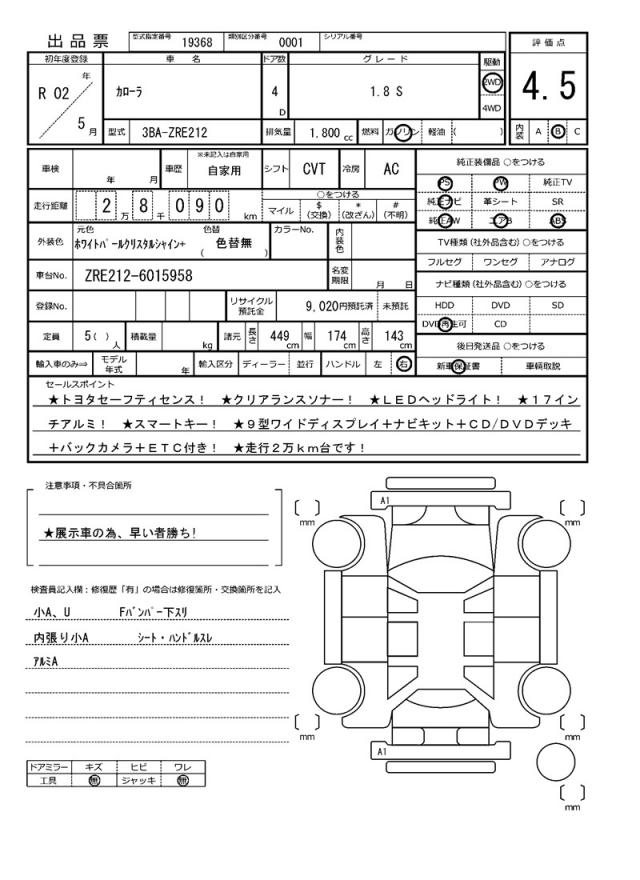 出品票 型式指定番号 19368 類別区分番号 0001 シリアル番号
評価点
4.5
内装 A B C
初年度登録 車名 ドア数 グレード 駆動
R 02 年 5 月 カローラ 4 D 1.8 S 2WD 4WD
型式 3BA-ZRE212 排気量 1.800 cc 燃料 ガソリン 軽油 ( )
車検 年 月 車歴 ※未記入は自家用 自家用 シフト CVT 冷房 AC
走行距離 2 万 8 千 0 9 0 km
○をつける
マイル $(交換) *(改ざん) #(不明)
外装色 元色 ホワイトパールクリスタルシャイン+ 色替 ( 色替無 ) カラーNo. 内装色
車台No. ZRE212-6015958 名変期限 月 日
登録No. リサイクル預託金 9,020円預託済 未預託
定員 5( ) 人 積載量 kg 諸元 長さ 449 cm 幅 174 cm 高さ 143 cm
輸入車のみ⇒ モデル年式 年 輸入区分 ディーラー 並行 ハンドル 左 右
純正装備品 ○をつける
PS PW 純正TV
純正ナビ 革シート SR
純正AW エアB ABS
TV種類 (社外品含む) ○をつける
フルセグ ワンセグ アナログ
ナビ種類 (社外品含む) ○をつける
HDD DVD SD
DVD再生可 CD
後日発送品 ○をつける
新車保証書 車輌取説
セールスポイント
★トヨタセーフティセンス! ★クリアランスソナー! ★LEDヘッドライト! ★17イン
チアルミ! ★スマートキー! ★9型ワイドディスプレイ+ナビキット+CD/DVDデッキ
+バックカメラ+ETC付き! ★走行2万km台です!
注意事項・不具合箇所
★展示車の為、早い者勝ち!
検査員記入欄:修復歴「有」の場合は修復箇所・交換箇所を記入
小A、U Fバンパー下スリ
内張り小A シート・ハンドルスレ
アルミA
ドアミラー キズ ヒビ ワレ
工具 無 ジャッキ 無
A1
[ ] mm
[ ] mm
[ ] mm
[ ] mm
A1
[ ] mm